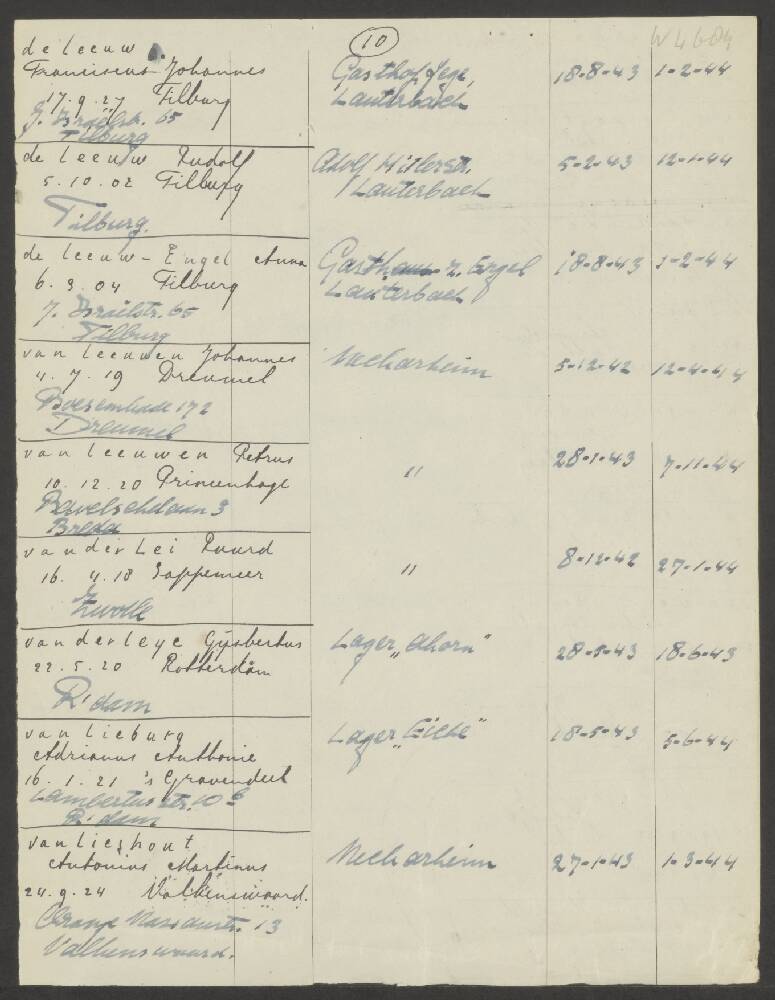 10
W 4604
de Leeuw
Franciscus Johannes Gasthof Jege, 18-8-43 1-2-44
17.9.27 Tilburg Lauterbach
J. Israëlstr. 65
Tilburg
de Leeuw Rudolf Adolf Hitlerstr. 5-2-43 12-1-44
5.10.02 Tilburg Lauterbach
Tilburg.
de Leeuw-Engel Anna Gasthaus z. Engel 18-8-43 1-2-44
6.3.04 Tilburg Lauterbach
J. Israëlstr. 65
Tilburg
van Leeuwen Johannes Neckarheim 5-12-42 12-4-44
4.7.19 Dreumel
172
Dreumel
van Leeuwen Petrus " 28-1-43 7-11-44
10.12.20 Princenhage
3
Breda
van der Lei Ruurd " 8-12-42 27-1-44
16.4.18 Sappemeer
Zwolle
van der Leye Gijsbertus Lager „Ahorn" 28-5-43 18-6-43
22.5.20 Rotterdam
R'dam
van Lieburg Lager „Eiche" 18-5-43 5-6-44
Adrianus Anthonie
16.1.21 's Gravendeel
Lambertus str. 10 b
R'dam
van Lieshout
Antonius Martinus Neckarheim 27-1-43 1-3-44
24.9.24 Valkenswaard.
Oranje Nassaustr. 13
Valkenswaard.